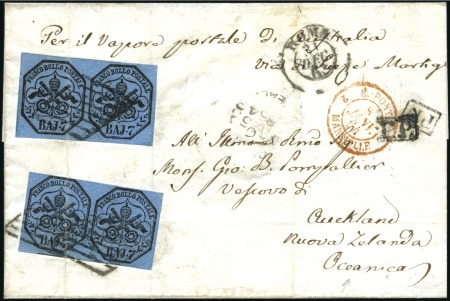 Per il Vapore postale di Marsiglia
via
ROMA
FRANCO BOLLO POSTALE FRANCO BOLLO POSTALE
BAJ. 7 BAJ. 7
MARSEILLE
P.D.
All' Illmo e Revmo
Mons. Gio: B. Pompallier
Vescovo di
Auckland
Nuova Zelanda
Oceanica
FRANCO BOLLO POSTALE FRANCO BOLLO POSTALE
BAJ. 7 BAJ. 7